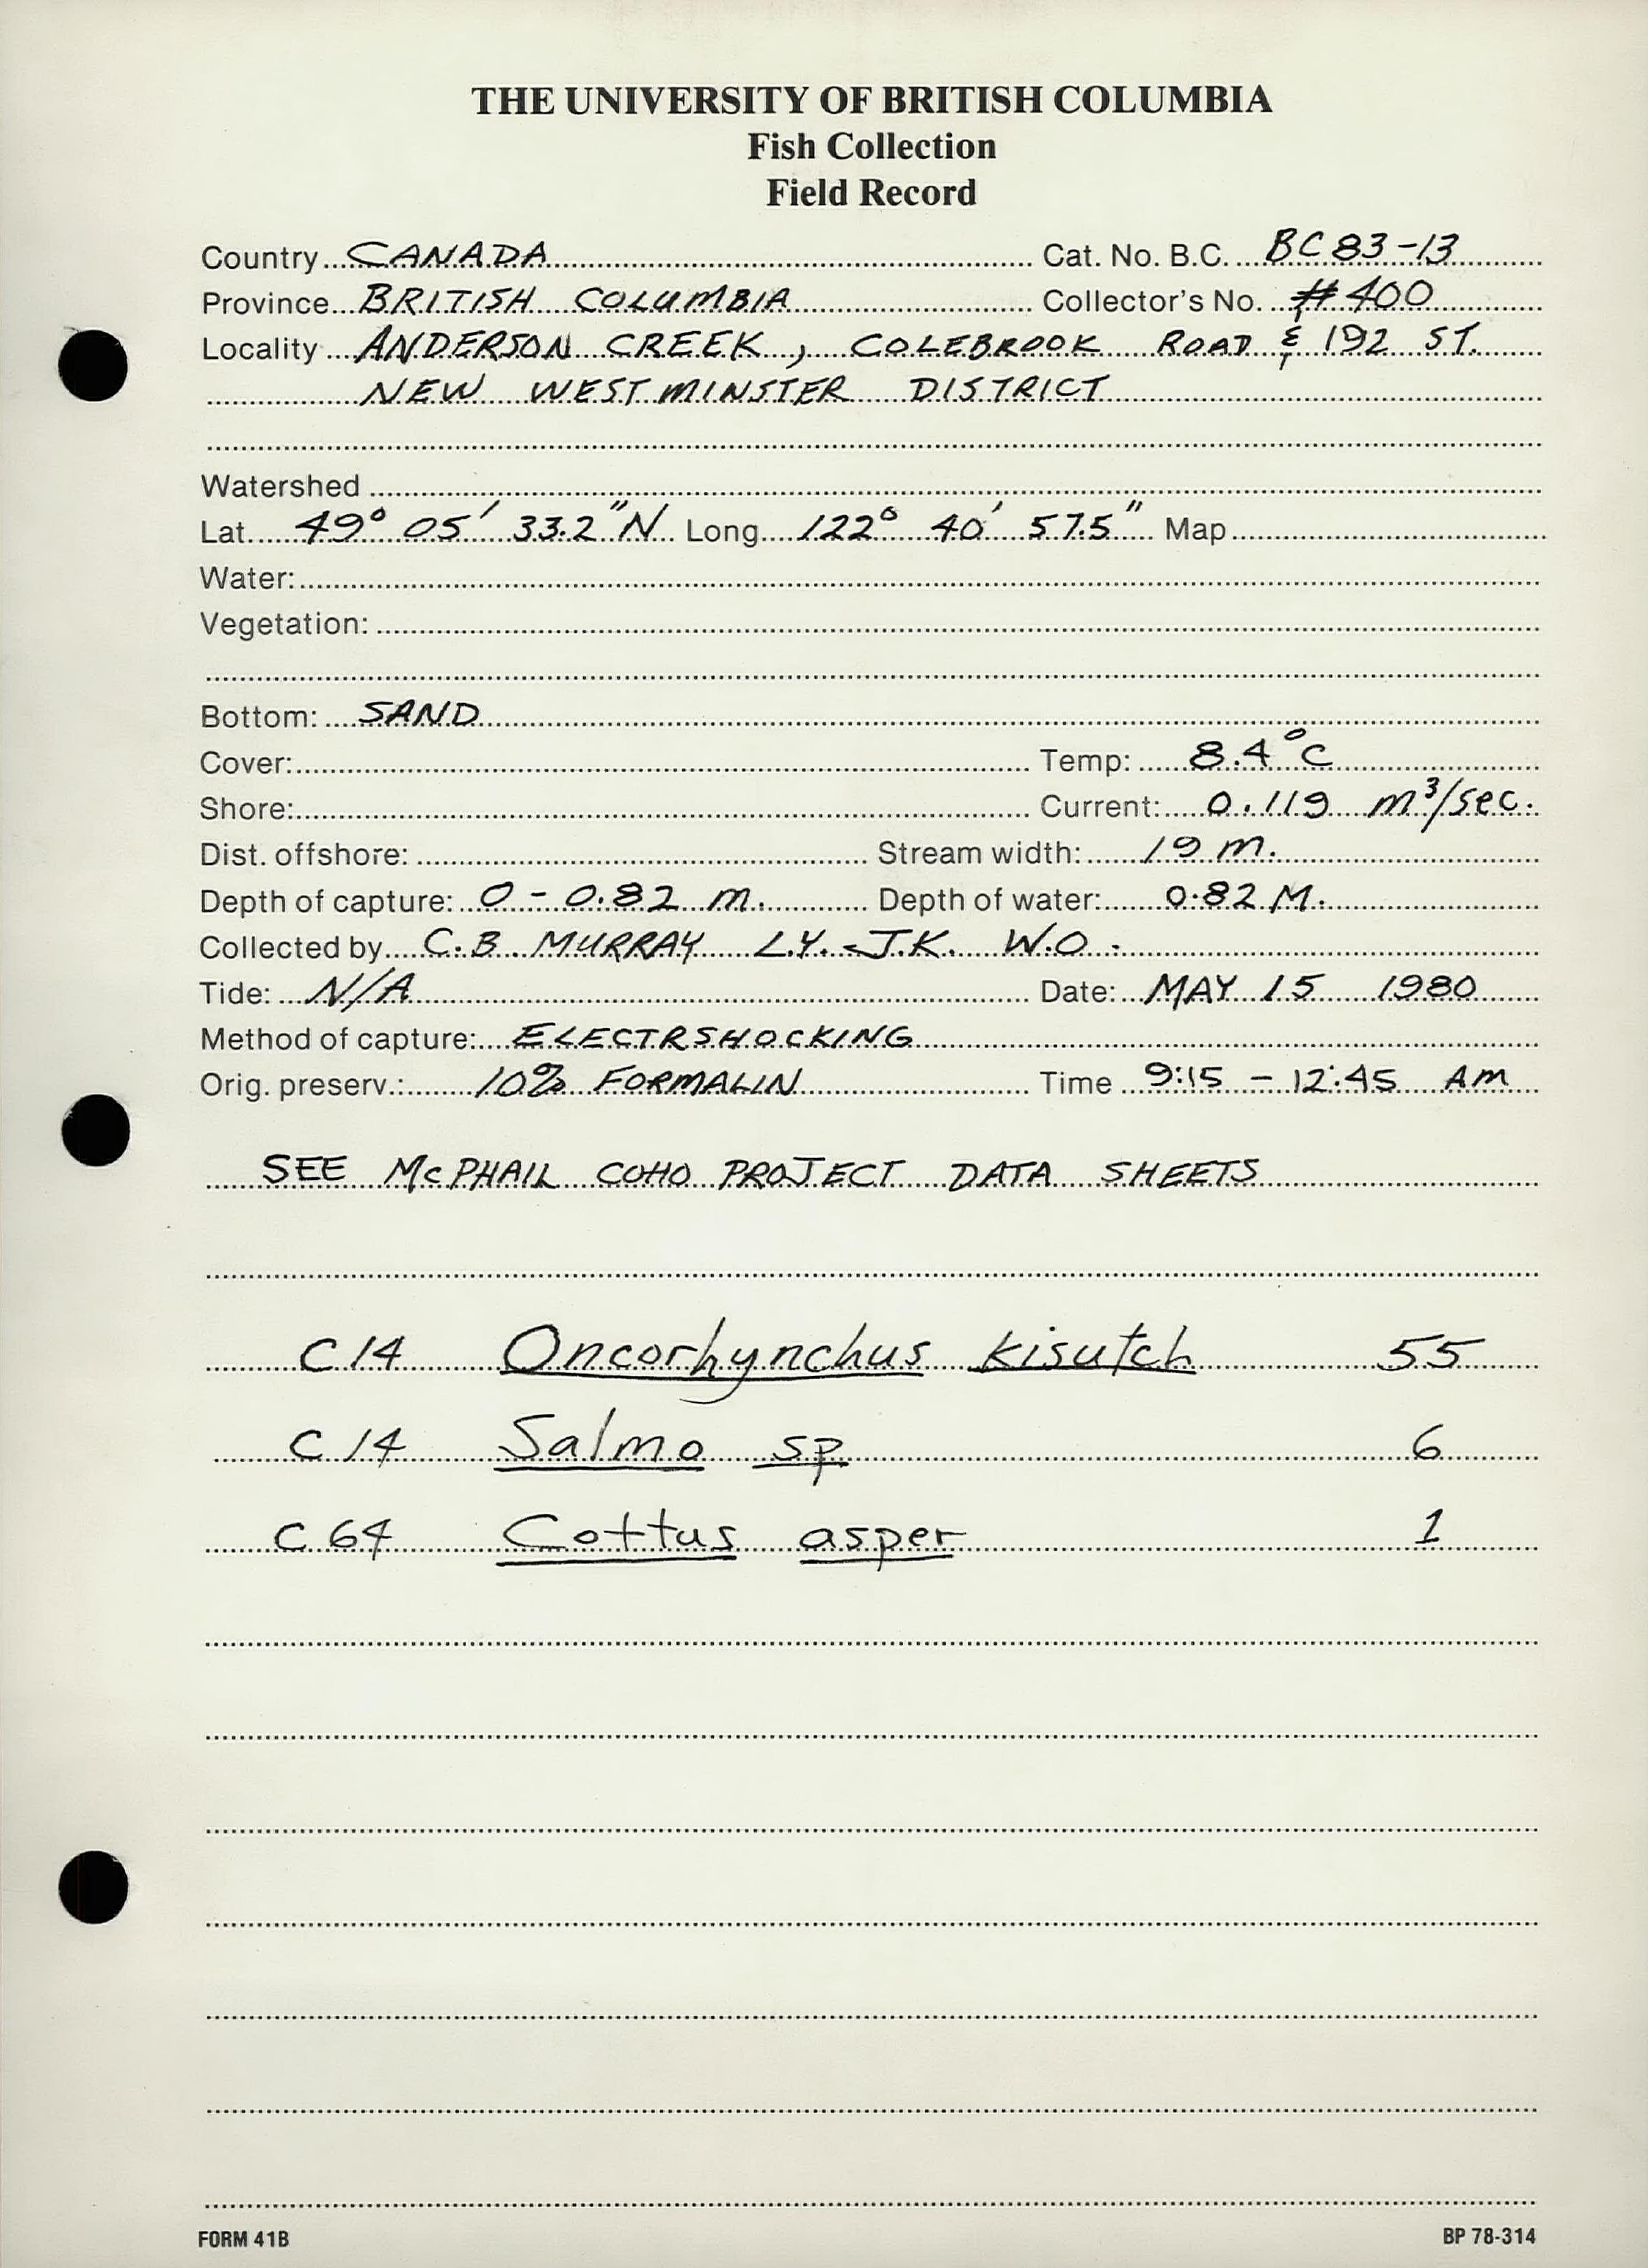 THE UNIVERSITY OF BRITISH COLUMBIA
Fish Collection
Field Record
Country CANADA Cat. No. B.C. BC 83-13
Province BRITISH COLUMBIA Collector's No. #400
Locality ANDERSON CREEK, COLEBROOK ROAD & 192 ST.
NEW WESTMINSTER DISTRICT
Watershed
Lat. 49° 05' 33.2" N Long. 122° 40' 57.5" Map
Water:
Vegetation:
Bottom: SAND
Cover: Temp: 8.4°C
Shore: Current: 0.119 m³/sec.
Dist. offshore: Stream width: 19 m.
Depth of capture: 0 - 0.82 m. Depth of water: 0.82 M.
Collected by C.B. MURRAY L.Y. J.K. W.O.
Tide: N/A Date: MAY 15 1980
Method of capture: ELECTRSHOCKING
Orig. preserv.: 10% FORMALIN Time 9:15 - 12:45 AM
SEE McPHAIL COHO PROJECT DATA SHEETS
C 14 Oncorhynchus kisutch 55
C 14 Salmo sp 6
C 64 Cottus asper 1
FORM 41B BP 78-314